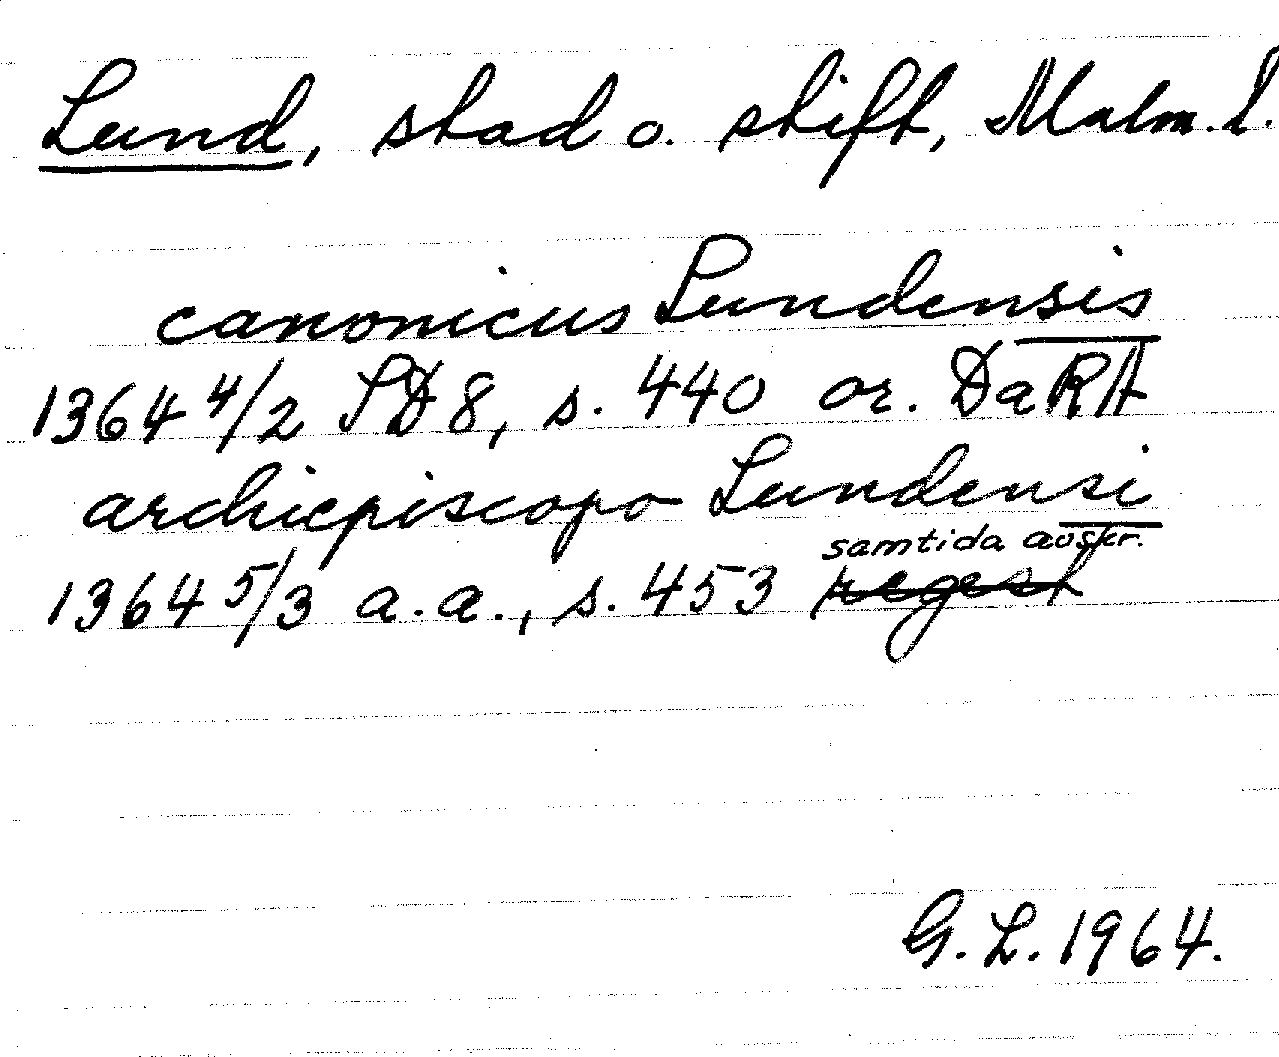 Lund, stad o. stift, Malm. l.
canonicus Lundensis
1364 4/2 SD 8, s. 440 or. DaRA
archiepiscopo Lundensi
samtida avskr.
1364 5/3 a.a., s. 453 regest
G. L. 1964.